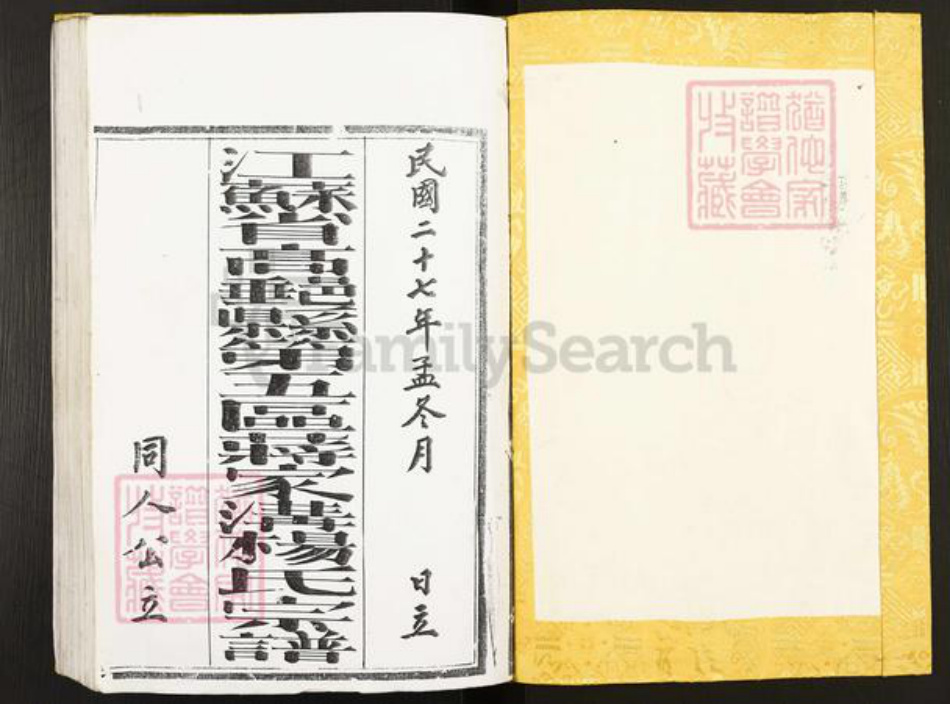 猶他家
譜學會
收藏
民國二十七年孟冬月 日立
江蘇省高郵縣第五區蔣家楊氏宗譜
同人公立
猶他家
譜學會
收藏
FamilySearch